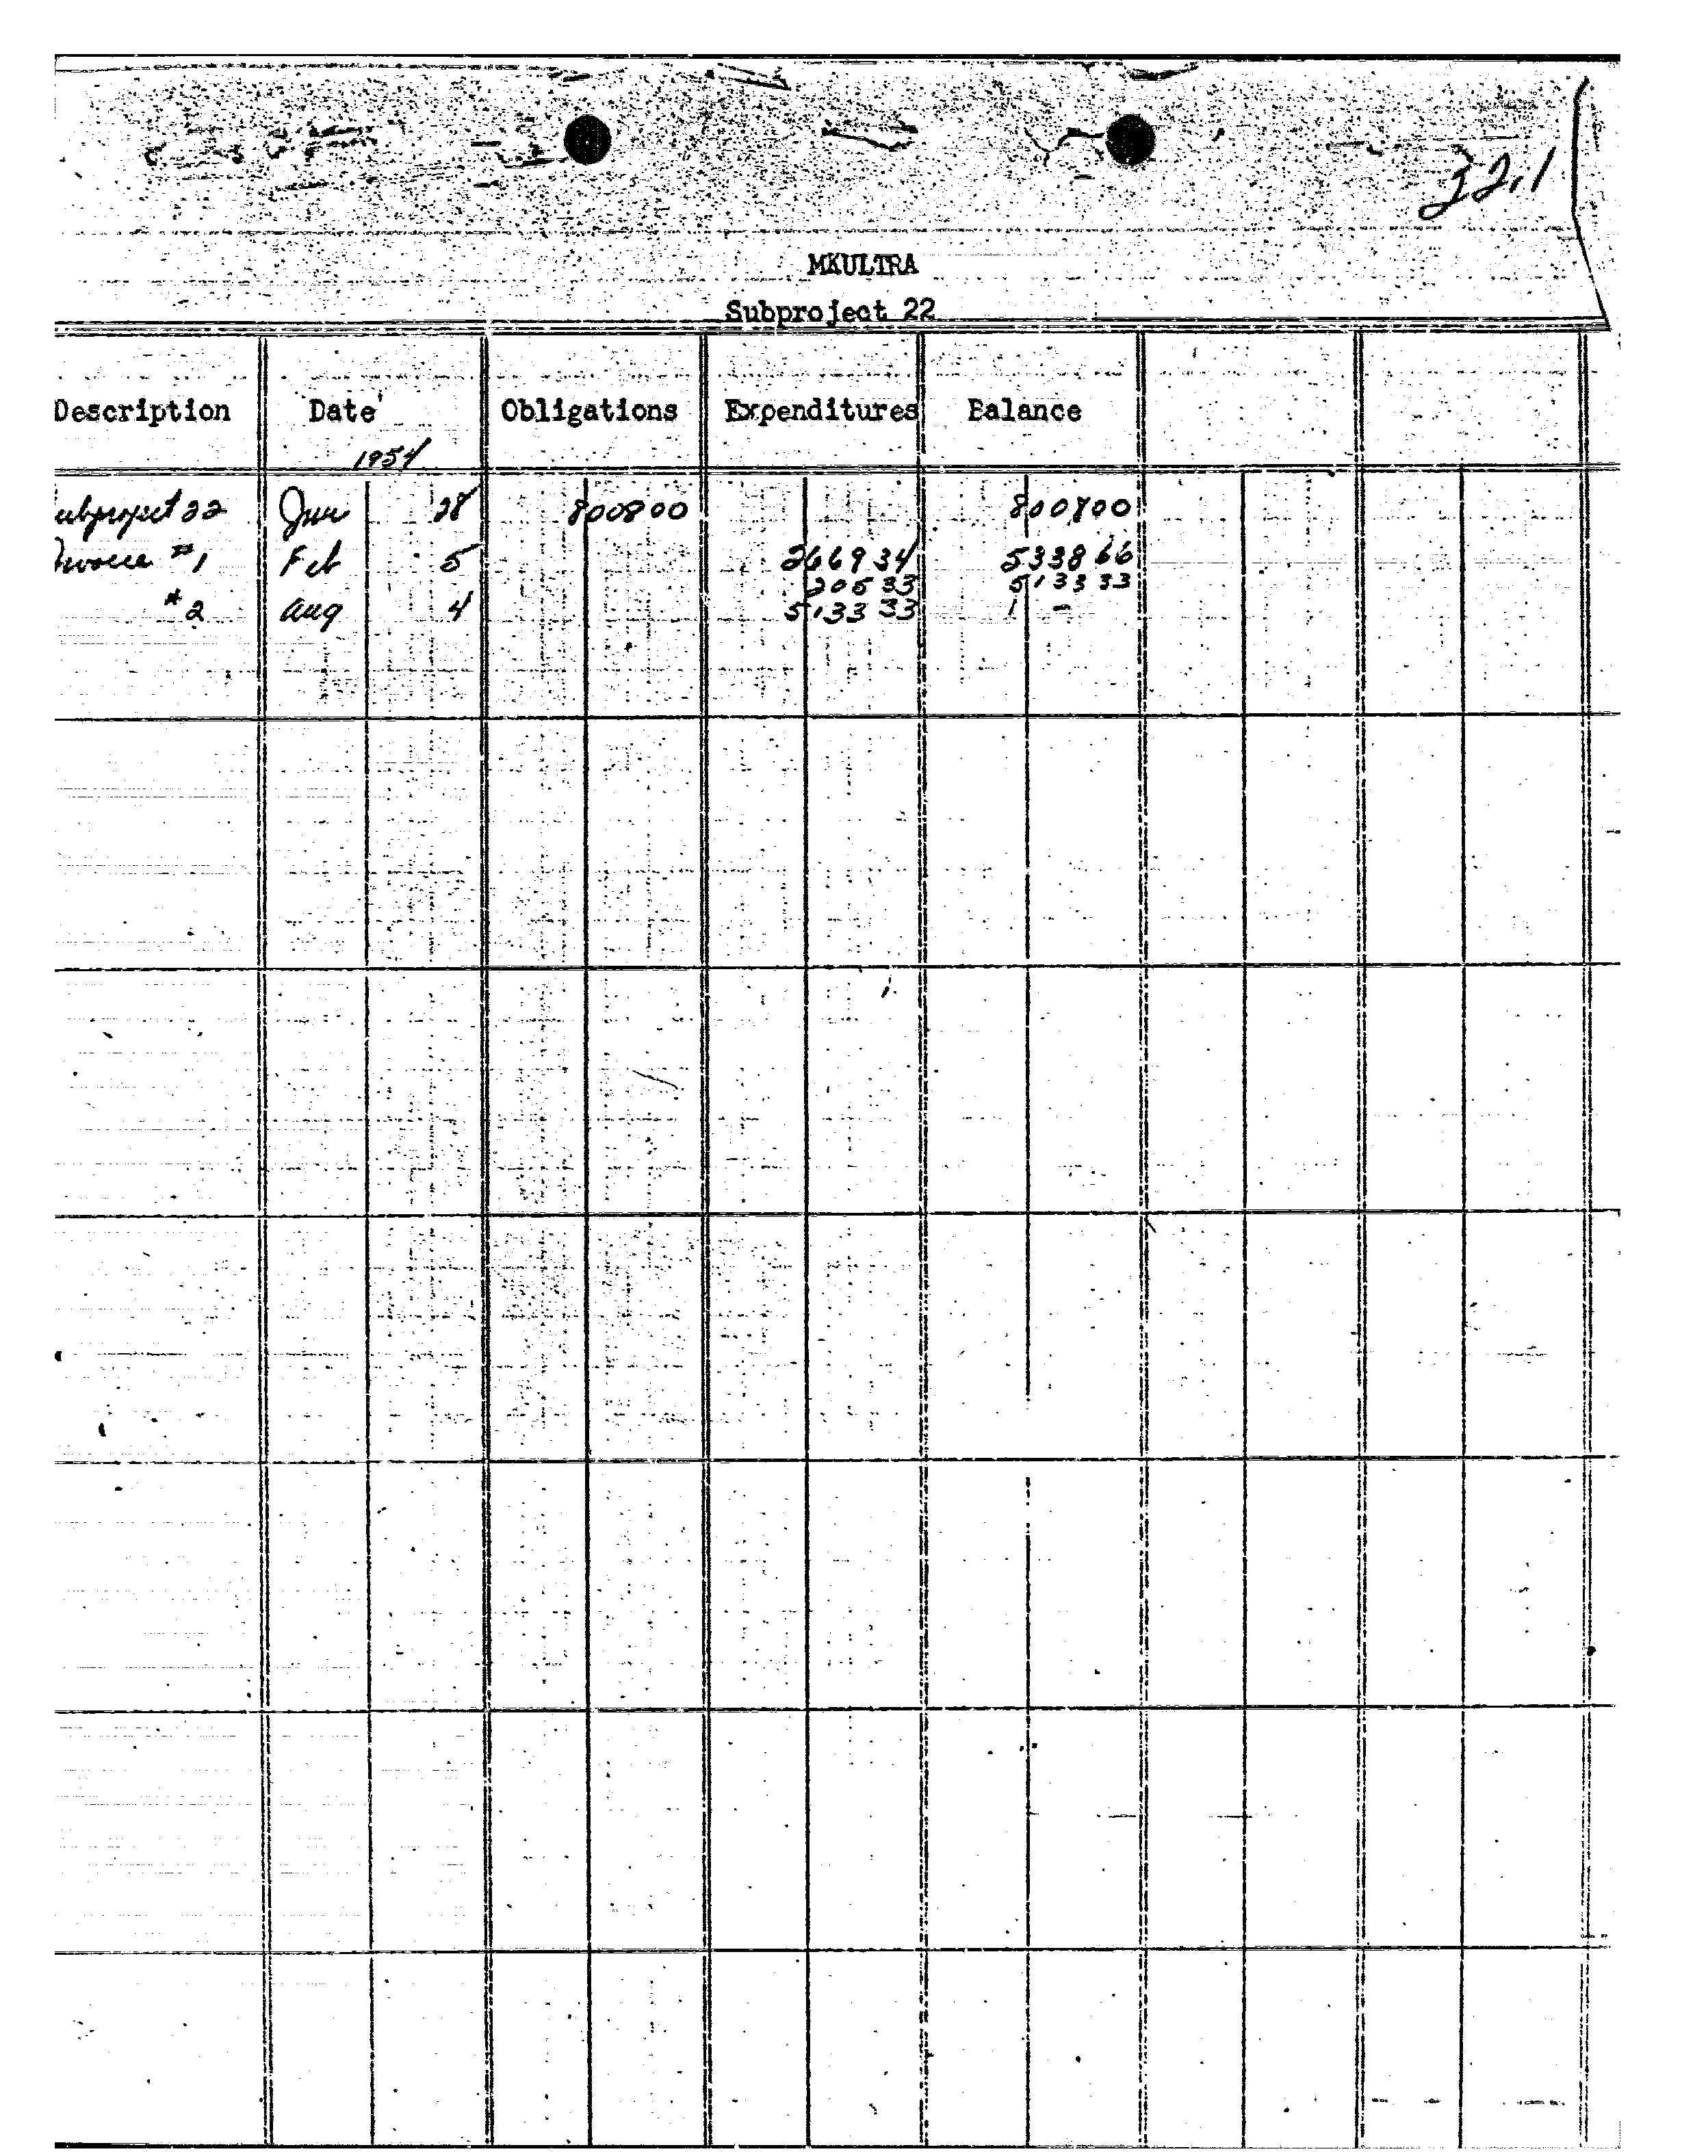 32.1
MKULTRA
Subproject 22
Description Date Obligations Expenditures Balance
1954
ubproject 22 Jun 28 8008 00 8008 00
Invoice #1 Feb 5 2669 34 5338 66
205 33 5133 33
#2 Aug 4 5133 33 -